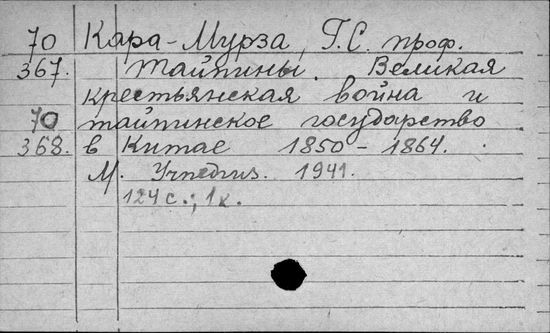 70 Кара-Мурза, Г.С. проф.
367. Тайпины. Великая
крестьянская война и
70 тайпинское государство
368. в Китае 1850-1864.
М. Учпедгиз. 1941.
124 с.; 1 к.